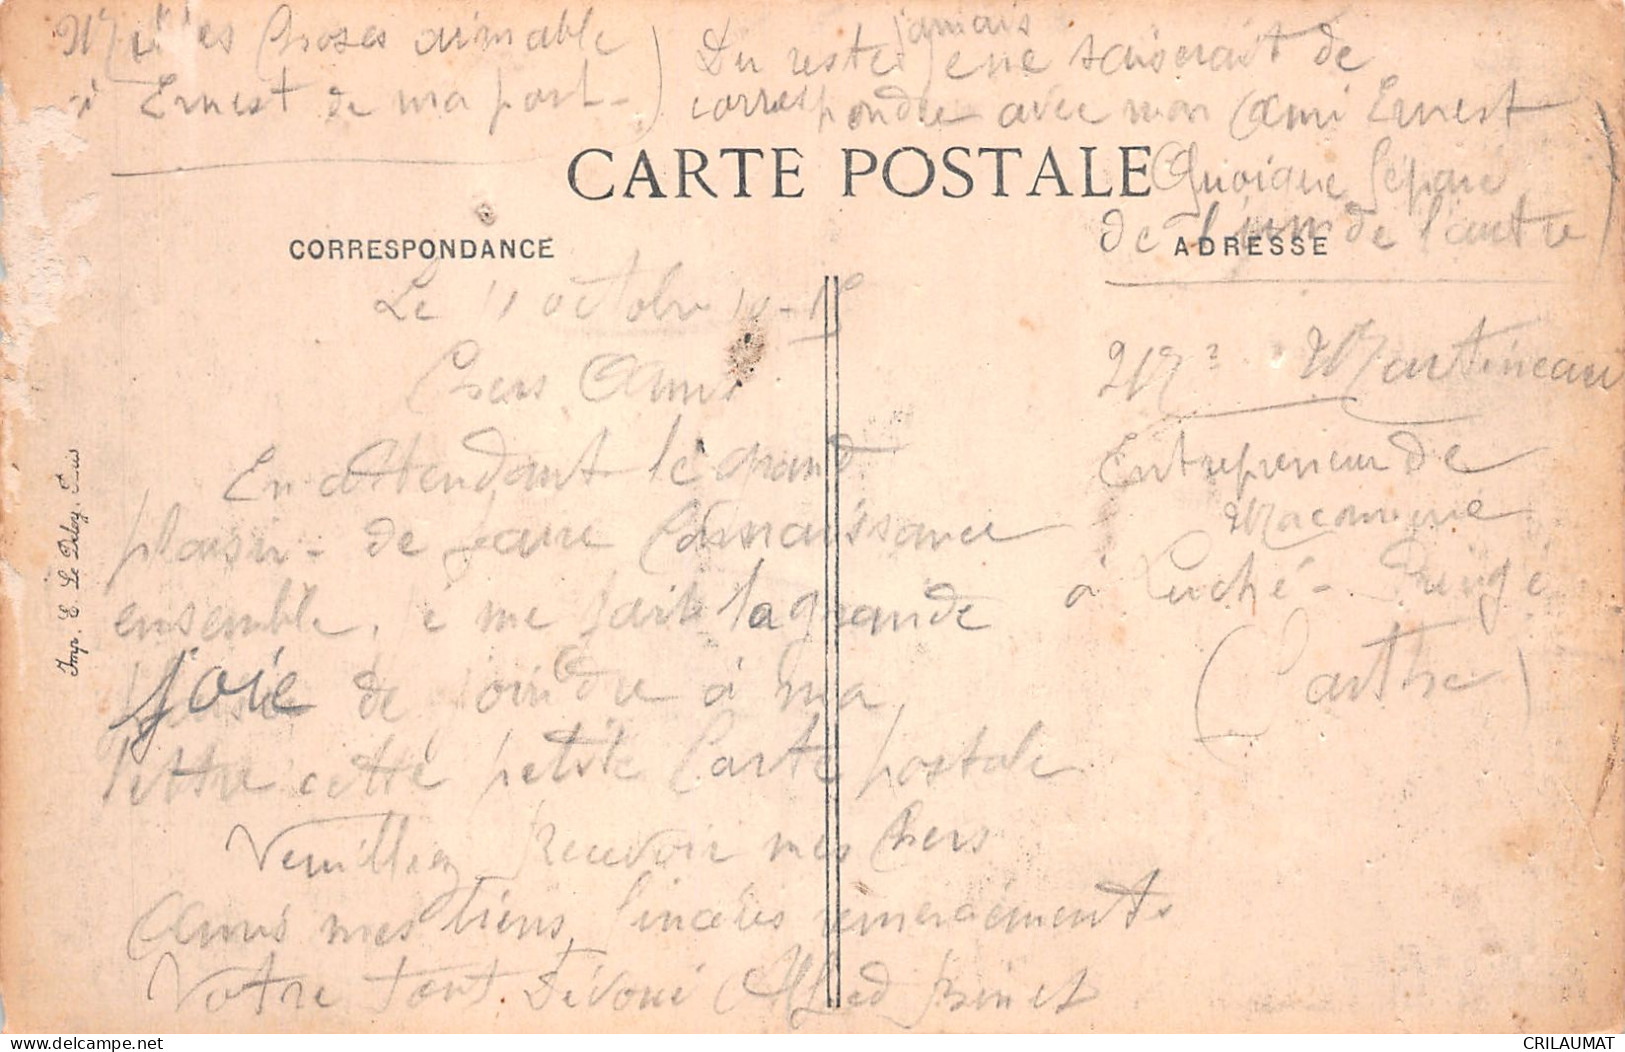 choses aimable
à Ernest de ma part -
Du reste jamais je ne saiserait de
correspondre avec mon ami Ernest
Quoique sépare
de l'un de l'autre
CARTE POSTALE
CORRESPONDANCE
ADRESSE
Le 11 octobre 19-15
Chers Amis
En attendant le grand
plaisir - de faire Connaissance
ensemble, é me fait la grande
joie de joindre à ma
lettre cette petite Carte postale
Veuillez Recevoir mes chers
Amis mes tiens sincères remerciements
Votre tout Dévoué Alfred Binet
Mr Martineau
Entrepreneur de
Maconnerie
à Luché-Pringé
(Sarthe)
Imp. E. Le Deley, Paris
CRILAUMAT